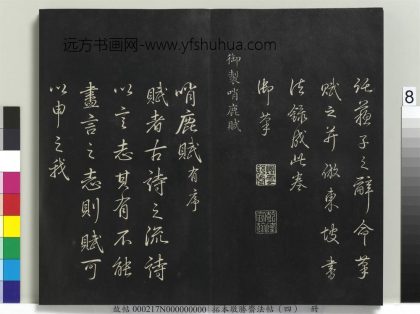 远方书画网-www.yfshuhua.com
蘇子之辭命筆
賦之并倣東坡書
法錄成此卷
御筆
御製哨鹿賦
哨鹿賦有序
賦者古詩之流詩
以言志其有不能
盡言之志則賦可
以申之我
8
故帖 000217N000000000 拓本敬勝齋法帖（四） 冊